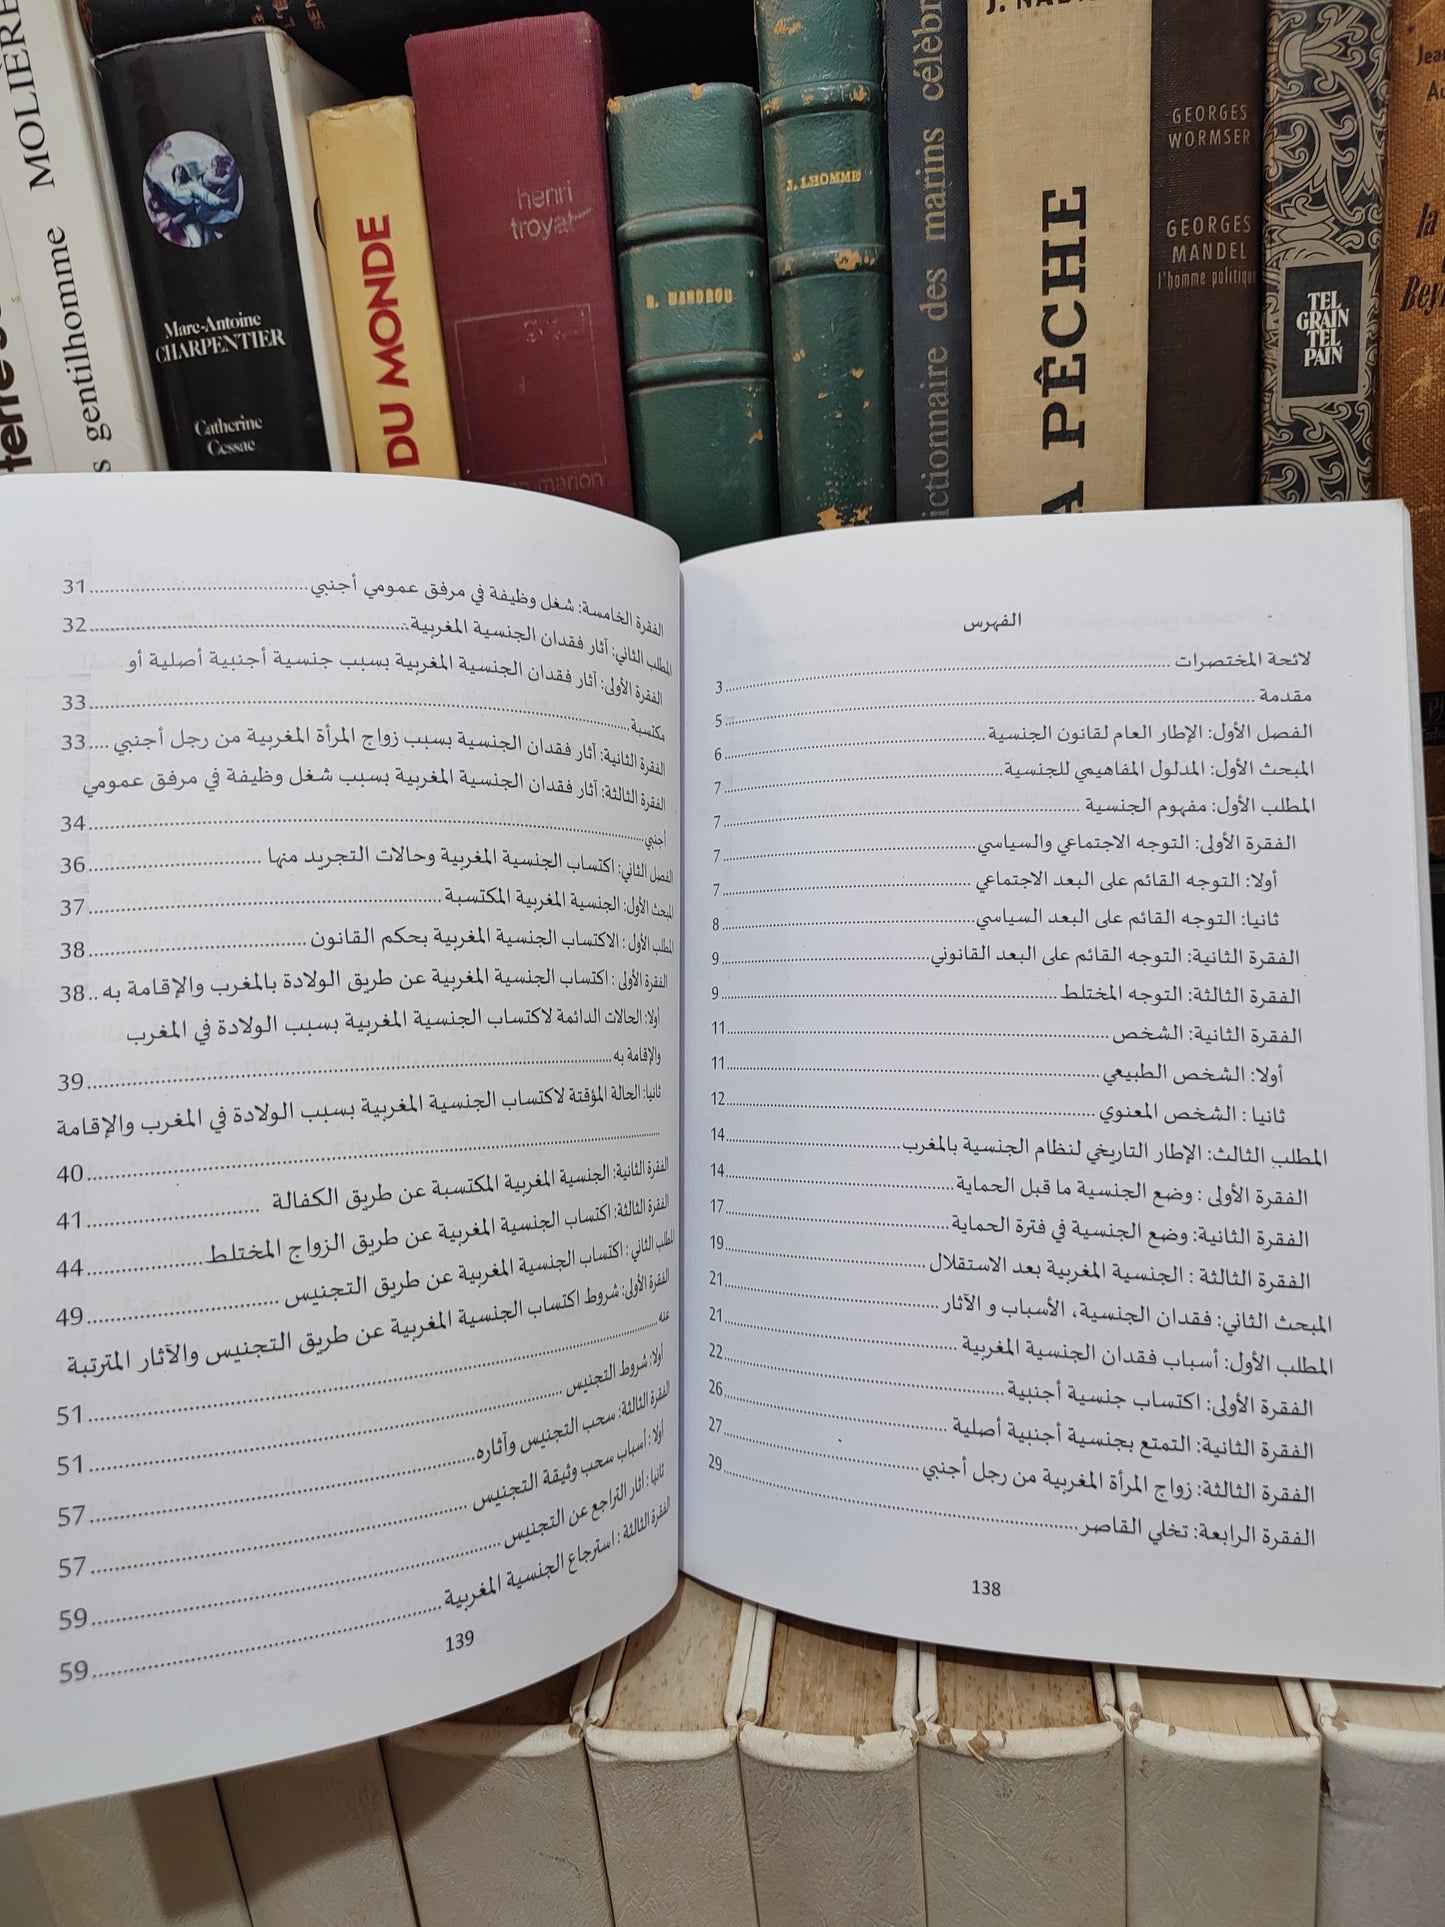 MOLIÈRE
gentilhomme
terre
Marc-Antoine
CHARPENTIER
Catherine
Cessac
DU MONDE
henri
troyat
J. LHOMME
dictionnaire des marins célèbr
A PÊCHE
GEORGES
WORMSER
GEORGES
MANDEL
l'homme politique
TEL
GRAIN
TEL
PAIN
الفهرس
لائحة المختصرات 3
مقدمة 5
الفصل الأول: الإطار العام لقانون الجنسية 6
المبحث الأول: المدلول المفاهيمي للجنسية 7
المطلب الأول: مفهوم الجنسية 7
الفقرة الأولى: التوجه الاجتماعي والسياسي 7
أولا: التوجه القائم على البعد الاجتماعي 7
ثانيا: التوجه القائم على البعد السياسي 8
الفقرة الثانية: التوجه القائم على البعد القانوني 9
الفقرة الثالثة: التوجه المختلط 9
الفقرة الثانية: الشخص 11
أولا: الشخص الطبيعي 11
ثانيا : الشخص المعنوي 12
المطلب الثالث: الإطار التاريخي لنظام الجنسية بالمغرب 14
الفقرة الأولى : وضع الجنسية ما قبل الحماية 14
الفقرة الثانية: وضع الجنسية في فترة الحماية 17
الفقرة الثالثة : الجنسية المغربية بعد الاستقلال 19
المبحث الثاني: فقدان الجنسية، الأسباب و الآثار 21
المطلب الأول: أسباب فقدان الجنسية المغربية 21
الفقرة الأولى: اكتساب جنسية أجنبية 22
الفقرة الثانية: التمتع بجنسية أجنبية أصلية 26
الفقرة الثالثة: زواج المرأة المغربية من رجل أجنبي 27
الفقرة الرابعة: تخلي القاصر 29
138
الفقرة الخامسة: شغل وظيفة في مرفق عمومي أجنبي 31
المطلب الثاني: آثار فقدان الجنسية المغربية 32
الفقرة الأولى: آثار فقدان الجنسية المغربية بسبب جنسية أجنبية أصلية أو
مكتسبة 33
الفقرة الثانية: آثار فقدان الجنسية بسبب زواج المرأة المغربية من رجل أجنبي 33
الفقرة الثالثة: آثار فقدان الجنسية المغربية بسبب شغل وظيفة في مرفق عمومي
أجنبي 34
الفصل الثاني: اكتساب الجنسية المغربية وحالات التجريد منها 36
المبحث الأول: الجنسية المغربية المكتسبة 37
المطلب الأول : الاكتساب الجنسية المغربية بحكم القانون 38
الفقرة الأولى : اكتساب الجنسية المغربية عن طريق الولادة بالمغرب والإقامة به 38
أولا: الحالات الدائمة لاكتساب الجنسية المغربية بسبب الولادة في المغرب
والإقامة به 39
ثانيا: الحالة المؤقتة لاكتساب الجنسية المغربية بسبب الولادة في المغرب والإقامة
40
الفقرة الثانية: الجنسية المغربية المكتسبة عن طريق الكفالة 41
الفقرة الثالثة: اكتساب الجنسية المغربية عن طريق الزواج المختلط 44
المطلب الثاني : اكتساب الجنسية المغربية عن طريق التجنيس 49
الفقرة الأولى: شروط اكتساب الجنسية المغربية عن طريق التجنيس والآثار المترتبة
عنه 51
اولا: شروط التجنيس 51
الفقرة الثالثة: سحب التجنيس وآثاره 57
اولا : أسباب سحب وثيقة التجنيس 57
ثانيا : آثار التراجع عن التجنيس 59
الفقرة الثالثة : استرجاع الجنسية المغربية 59
139